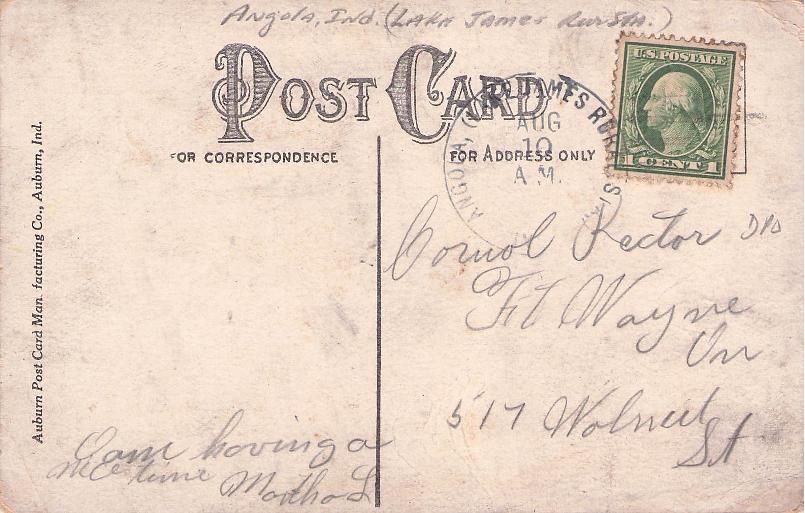 Angola, Ind. (Lake James Rur Sta.)
POST CARD
FOR CORRESPONDENCE
FOR ADDRESS ONLY
U.S. POSTAGE
1 CENT 1
ANGOLA, JAMES RURAL S
AUG
10
A.M.
Rector
Ft Wayne
517 Walnut
St
I am having a
nice time Martha L
Auburn Post Card Man facturing Co., Auburn, Ind.